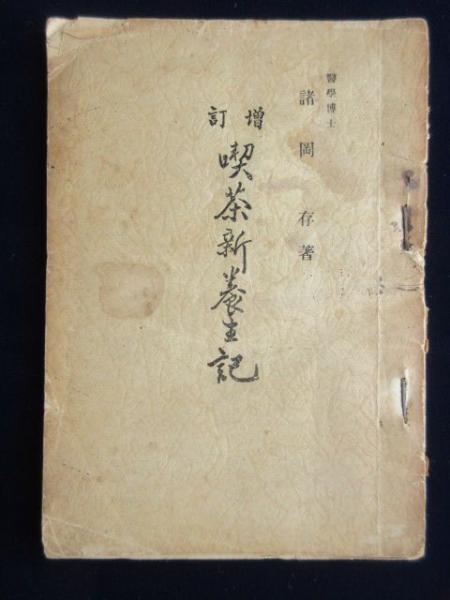 醫學博士
諸岡存著
增訂
喫茶新養生記